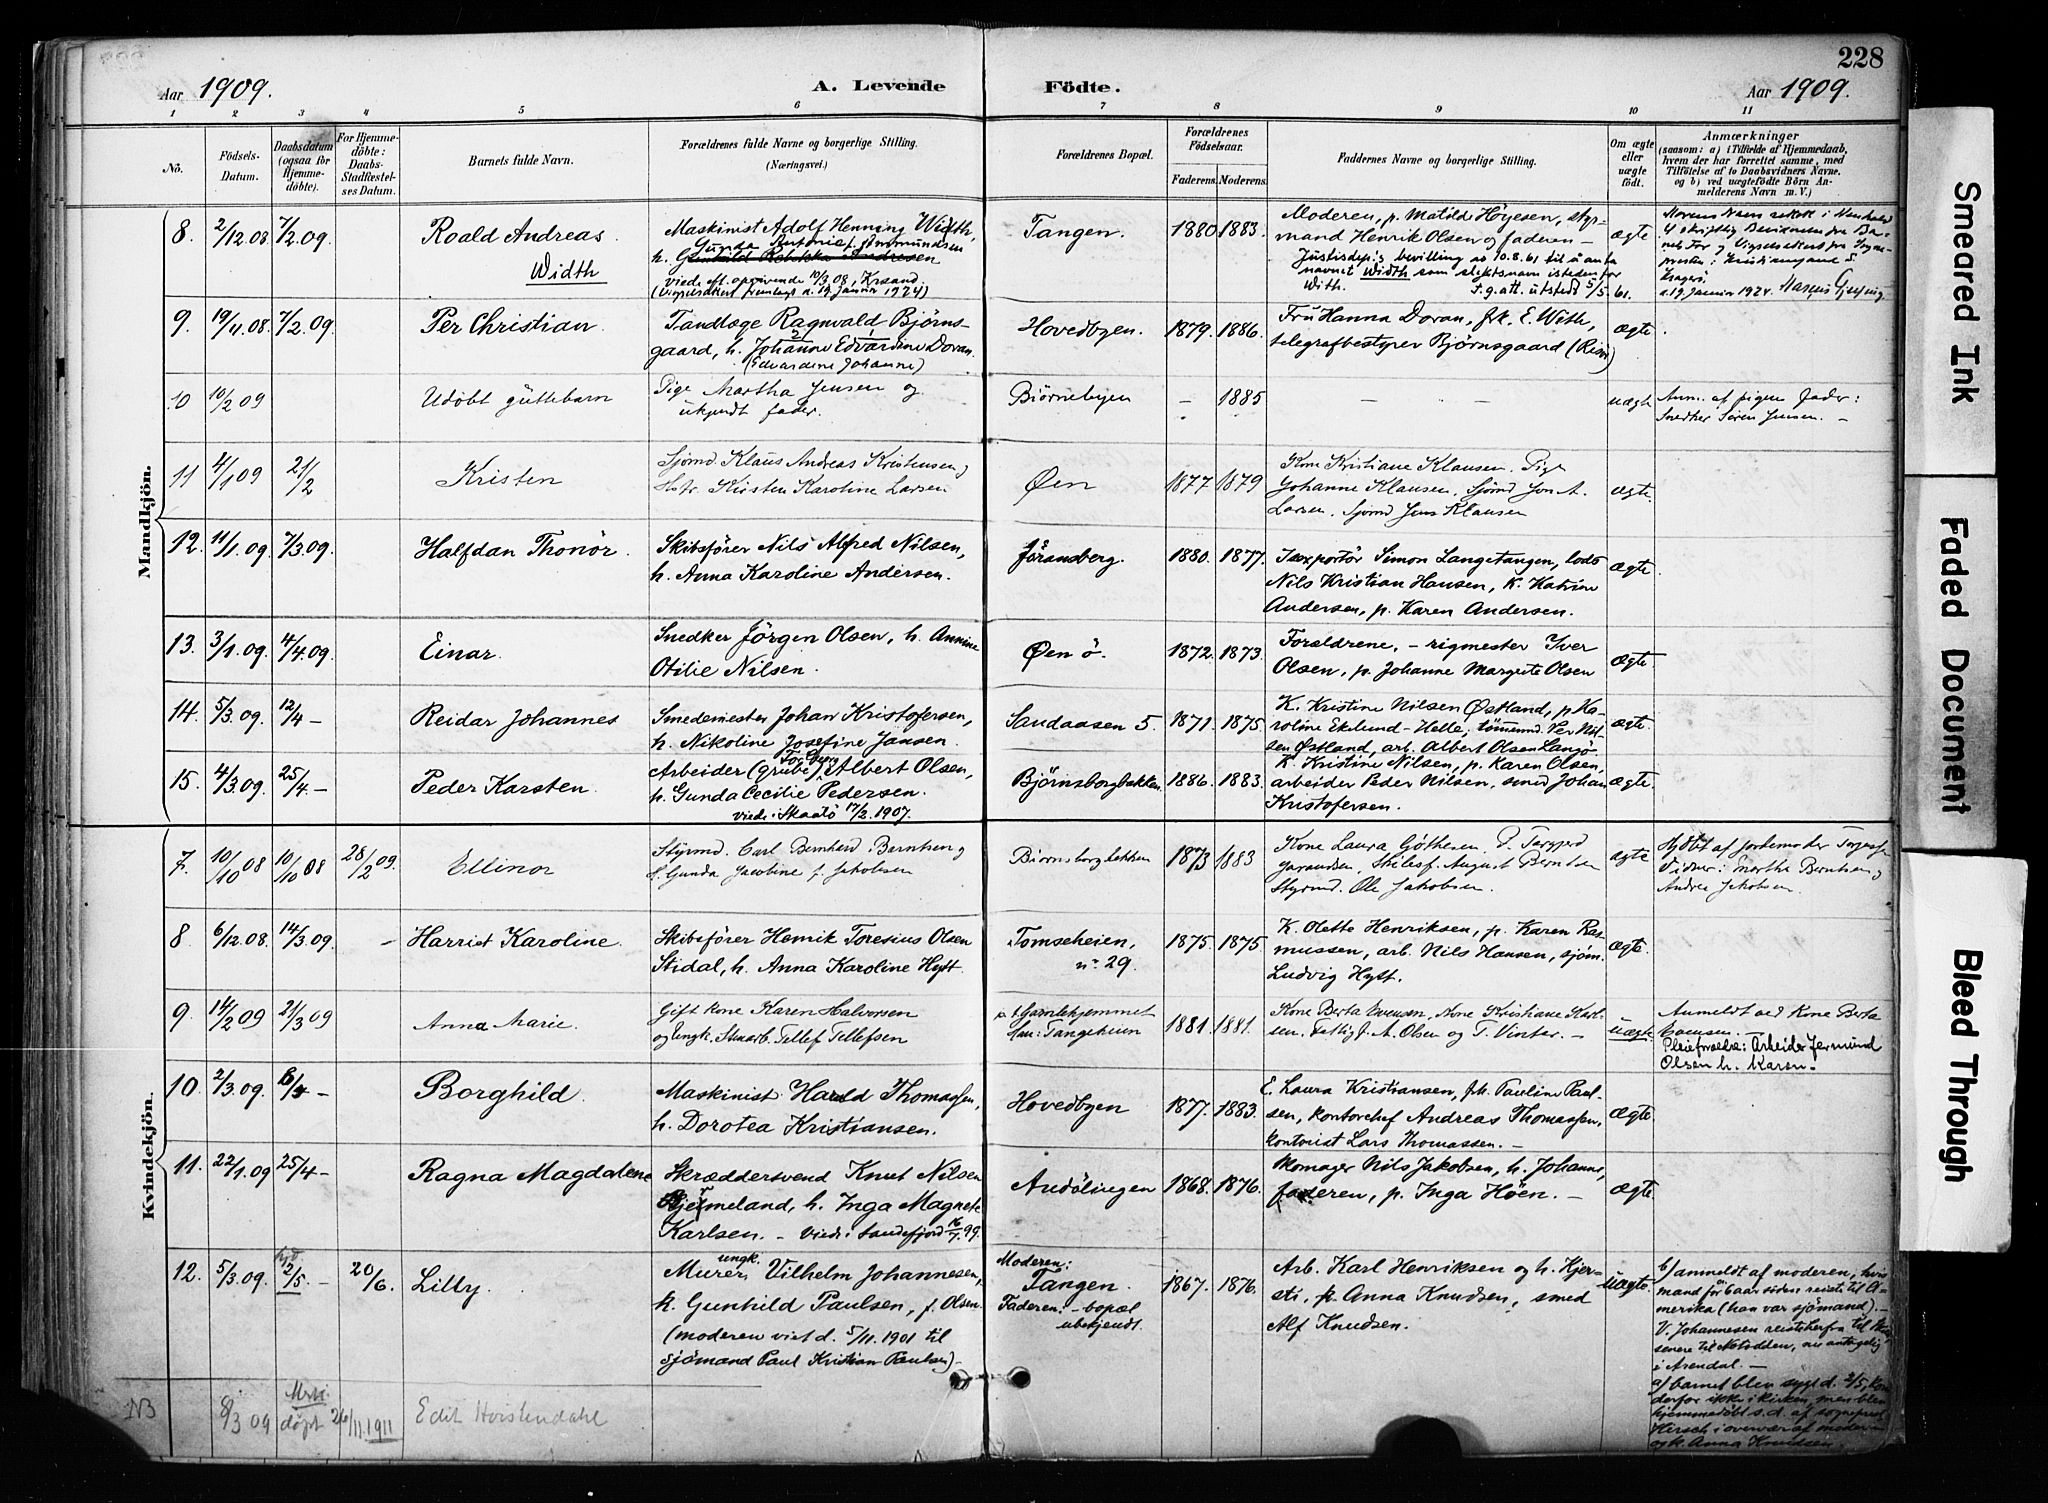 228
Aar 1909.
A. Levende
Födte.
Aar 1909.
1 2 3 4 5 6 7 8 9 10 11
No.
Födsels-
Datum.
Daabsdatum
(ogsaa for
Hjemme-
döbte).
For Hjemme-
döbte:
Daabs-
Stadfæstel-
ses Datum.
Barnets fulde Navn.
Forældrenes fulde Navne og borgerlige Stilling.
(Næringsvei.)
Forældrenes Bopæl.
Forældrenes
Födselsaar.
Faderens. Moderens.
Faddernes Navne og borgerlige Stilling.
Om ægte
eller
uægte
födt.
Anmærkninger
(saasom: a) i Tilfælde af Hjemmedaab,
hvem der har forrettet samme, med
Tilföielse af to Daabsvidners Navne.
og b) ved uægtefödte Börn An-
melderens Navn m. V.)
Mandkjön.
8. 2/12.08. 7/2.09.
Roald Andreas
Width
Maskinist Adolf Henning Width,
Gunda
h. Gunhild Rebekka Andresen
viede eft. opgivende 10/3 08, Krsand.
(Vigselsattest fremlagt d. 19 januar 1924)
Tangen.
1880 1883.
Moderen, p. Matilde Höyesen, styr-
mand Henrik Olsen og faderen –
Justisdep's bevilling av 10.8.61 til å anta
navnet Width som slektsnavn istedenfor
With.
F. g. att. utstedt 5/5.61.
ægte
d. 19 Januar 1924.
9. 19/11.08. 7/2.09.
Per Christian
Tandlæge Ragnvald Björns-
gaard, h. Johanne Edvardine Doran.
(Edvardine Johanne)
Hovedbyen.
1879. 1886.
Fru Hanna Doran, frk. E. With,
telegrafbestyrer Björnsgaard (Risör)
ægte
10 10/2 09
Udöbt güttebarn
Pige Martha Jensen og
ukjendt fader.
Biörnebyen
– 1885
– – –
uægte
Anm. af pigens fader:
Snedker Sören Jensen. –
11 4/1 09 21/2
Kristen
Sjömd. Klaus Andreas Kristensen og
Hstr. Kirsten Karoline Larsen
Öen
1877 1879
Kone Kristiane Klausen. Pige
Johanne Klausen. Sjömd Jon A.
Larsen. Sjömd Jens Klausen
ægte.
12. 11/1.09. 7/3.09.
Halfdan Thonör.
Skibsförer Nils Alfred Nilsen,
h. Anna Karoline Andersen.
Jöransberg.
1880. 1877.
Isexportör Simon Langetangen, lods
Nils Kristian Hansen, K. Katrine
Andersen, p. Karen Andersen.
ægte.
13. 3/1.09. 4/4.09.
Einar.
Snedker Jörgen Olsen, h. Annine
Otilie Nilsen.
Öen ö.
1872. 1873.
Forældrene, – rigmester Iver
Olsen, p. Johanne Margrete Olsen
ægte.
14. 5/3.09. 12/4 –
Reidar Johannes
Smedemester Johan Kristofersen,
h. Nikoline Josefine Jansen.
Sandaasen 5.
1871. 1875.
K. Kristine Nilsen Östland, p. Ka-
roline Eklund – Helle, tömmermd. Per Nil-
sen Östland, arb. Albert Olsen Langö
ægte.
15. 4/3.09. 25/4.–
Peder Karsten.
Arbeider (grube) Albert Olsen,
h. Gunda Cecilie Pedersen.
viede i Skaatö 17/2.1907.
Björnsborgbakken.
1886. 1883.
K. Kristine Nilsen, p. Karen Olsen,
arbeider Peder Nilsen, smed Johan
Kristofersen.
ægte.
Kvindekjön.
7. 10/10 08 10/10 08 28/2 09.
Ellinor
Styrmd. Carl Bernhard Berntsen og
h. Gunda Jacobine f. Jakobsen
Biörnsborgbakken
1873 1883
Kone Laura Göthesen. P. Torgjerd
Styrmd. Ole Jakobsen.
ægte
Hjdöbt af jordemoder
Vidner: Marthe Berntsen og
Andrea Jakobsen.
8 6/12.08. 14/3.09. –
Harriet Karoline.
Skibsförer Henrik Toresius Olsen
Stidal, h. Anna Karoline Hytt.
Tomseheien,
nr. 29.
1875. 1875
K. Olette Henriksen, p. Karen Ras-
mussen, arb. Nils Hansen, sjöm.
Ludvig Hytt.
ægte.
9. 14/2 09 21/3 09
Anna Marie.
Gift kone Karen Halvorsen
og Ungk. Stuearb. Tellef Tellefsen
p. t. Gamlehjemmet
Han: Tangeheien
1881. 1881.
Kone Berta Evensen, Kone Kristiane Karl-
sen. Fattigf. A. Olsen og T. Vinter. –
uægte.
Anmeldt ved Kone Berta
Evensen.
Pleieforældre: Arbeider Jermund
Olsen h. Karen.
10. 2/3.09. 6/4 –
Borghild
Maskinist Harald Thomassen,
h. Dorotea Kristiansen.
Hovedbyen
1877. 1883.
E. Laura Kristiansen, frk. Pauline Paul-
sen, kontorchef Andreas Thomassen,
kontorist Lars Thomassen. –
ægte.
11. 22/1.09 25/4 –
Ragna Magdalene
Skræddersvend Knut Nilsen
Hjermeland, h. Inga Magnete
Karlsen. – Viede i Sandefjord 16/7.99.
Andölingen
1868. 1876.
Momager Nils Jakobsen, h. Johanne,
faderen, p. Inga Höen. –
ægte.
12. 5/3.09. hjd. 2/5. – 20/6.
Lilly.
ungk.
Murer Vilhelm Johannesen,
k. Gunhild Paulsen, f. Olsen.
(moderen viet d. 5/11.1901 til
sjömand Paul Kristian Paulsen) –
Moderen:
Tangen.
Faderen: – bopæl
ubekjendt.
1867. 1876.
Arb. Karl Henriksen og h. Kjer-
sti, p. Anna Knudsen, smed
Alf Knudsen.
uægte.
b) anmeldt af moderen, hvis
mand for 6 aar siden reiste til A-
merika (han var sjömand). –
V. Johannesen reiste herfra til
senere til Notodden, nu antagelig
i Arendal. –
a) barnet blev sygt d. 2/5, kom
derfor ikke i kirken, men blev
hjemmedöbt s. d. af sogneprest
Hersch i overvær af moderen
og k. Anna Knudsen.
NB 8/3 09 döpt 26/11.1911
Edit Hvistendahl
Smeared Ink
Faded Document
Bleed Through